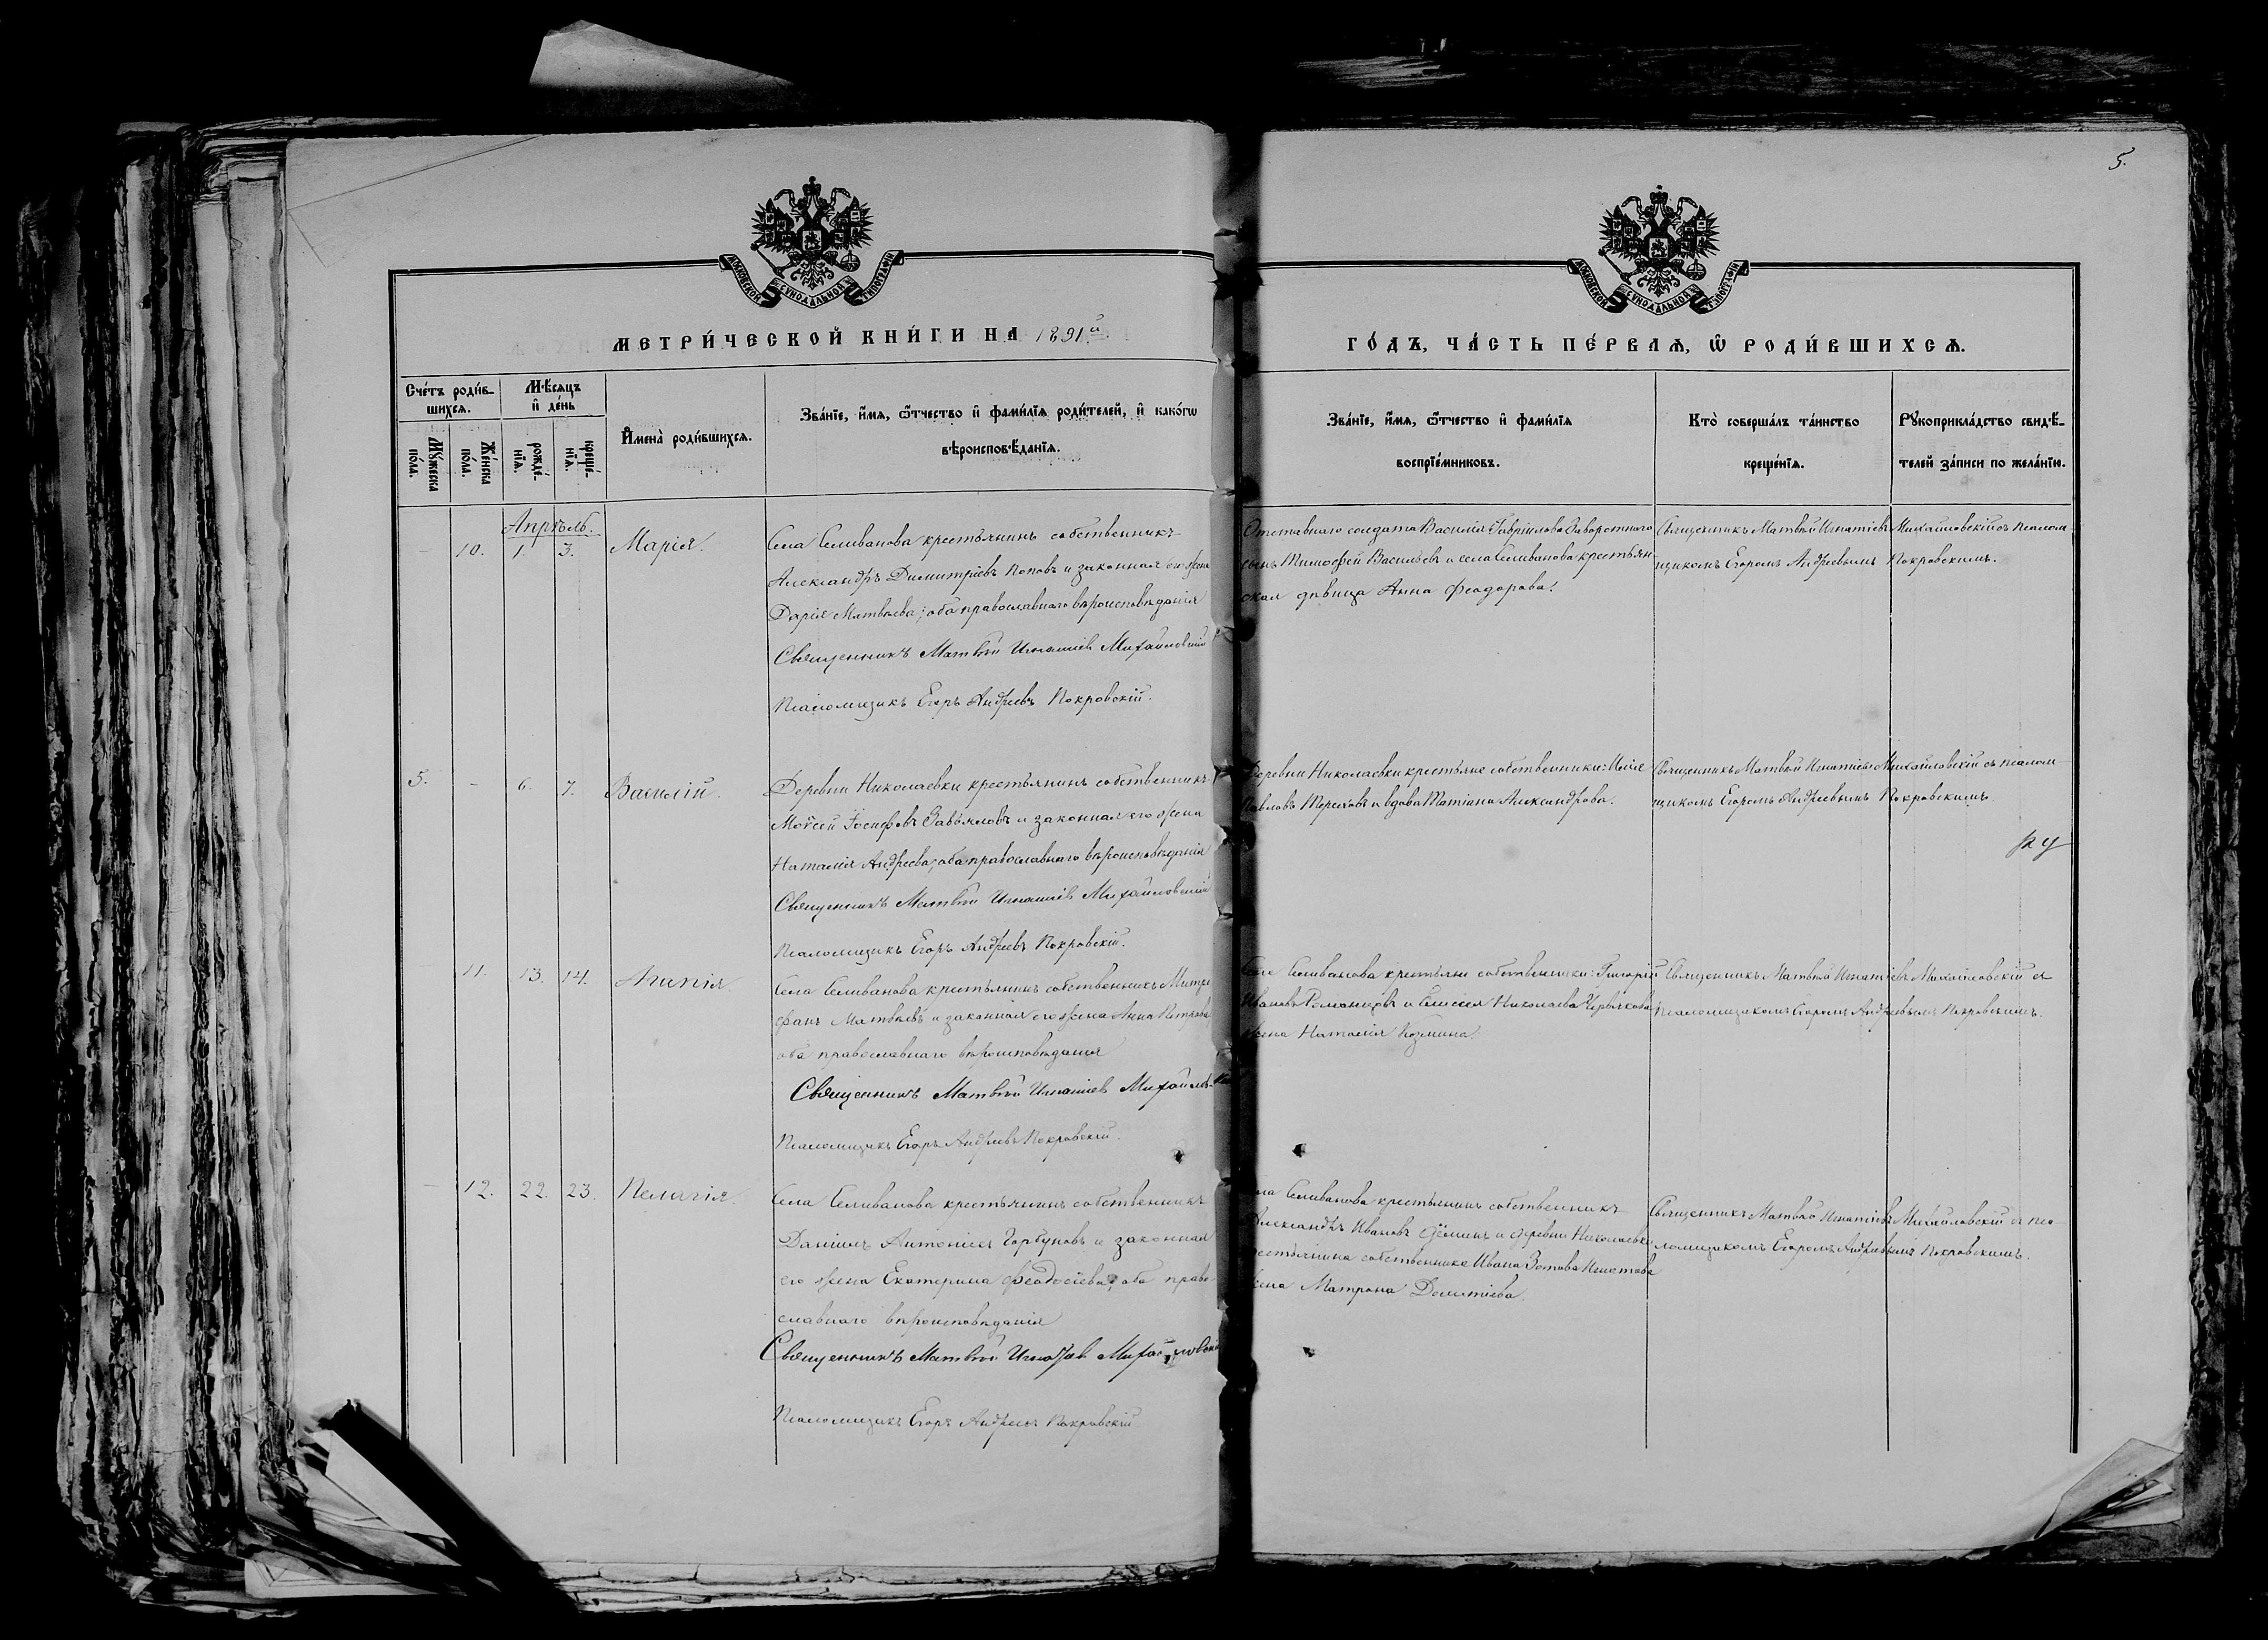 5.
МОСКОВСКОЙ СѴНОДАЛЬНОЙ ТИПОГРАФІИ
МОСКОВСКОЙ СѴНОДАЛЬНОЙ ТИПОГРАФІИ
МЕТРИ́ЧЕСКОЙ КНИ́ГИ НА 1891й
ГО́ДЪ, ЧА́СТЬ ПЕ́РВАѦ, Ѡ҆ РОДИ́ВШИХСѦ.
Сче́тъ роди́в-
шихсѧ.
Мѣ́сѧцъ
и҆ де́нь
Мꙋ́жеска по́ла.
Же́нска по́ла.
рожде́-нїѧ.
креще́-нїѧ.
И҆мена̀ роди́вшихсѧ.
Зва́нїе, и҆́мѧ, ѻ҆́тчество и҆ фами́лїѧ роди́телей, и҆ како́гѡ
вѣроисповѣ́данїѧ.
Зва́нїе, и҆́мѧ, ѻ҆́тчество и҆ фами́лїѧ
воспрїе́мниковъ.
Кто̀ соверша́лъ та́инство
креще́нїѧ.
Рꙋкоприкла́дство свидѣ́-
телей за́писи по жела́нїю.
Апрѣль.
– 10. 1. 3. Марія.
Села Селиванова крестьянинъ собственникъ
Александръ Димитріевъ Поповъ и законная его жена
Дарія Матвѣева; оба православнаго вѣроисповѣданія
Священникъ Матвѣй Игнатіевъ Михайловскій
Псаломщикъ Егоръ Андреевъ Покровскій.
Отставнаго солдата Василія Гавріилова Заворотнаго
сынъ Тимофей Васильевъ и села Селиванова крестьян
ская дѣвица Анна Феодорова.
Священникъ Матвѣй Игнатіевъ Михайловскій съ псалом
щикомъ Егоромъ Андреевымъ Покровскимъ.
5. – 6. 7. Василій.
Деревни Николаевки крестьянинъ собственникъ
Моѵсей Іосифовъ Завьяловъ и законная его жена
Наталія Андреева; оба православнаго вѣроисповѣданія
Священникъ Матвѣй Игнатіевъ Михайловскій
Псаломщикъ Егоръ Андреевъ Покровскій.
Деревни Николаевки крестьяне собственники:
Павловъ Тереховъ и вдова Татіана Александрова.
Священникъ Матвѣй Игнатіевъ Михайловскій съ псалом
щикомъ Егоромъ Андреевымъ Покровскимъ
11. 13. 14. Агапія.
Села Селиванова крестьянинъ собственникъ Митро
фанъ Матвѣевъ и законная его жена Анна Петрова
оба православнаго вѣроисповѣданія
Священникъ Матвѣй Игнатіевъ Михайлов-
Псаломщикъ Егоръ Андреевъ Покровскій.
Села Селиванова крестьяне собственники: Григорій
Ивановъ Романцовъ и Елисея Николаева Червякова
жена Наталія Козмина.
Священникъ Матвѣй Игнатіевъ Михайловскій съ
псаломщикомъ Егоромъ Андреевымъ Покровскимъ.
– 12. 22. 23. Пелагія
Села Селиванова крестьянинъ собственникъ
Даніилъ Антоніевъ Горбуновъ и законная
его жена Екатерина Феодосіева; оба право-
славнаго вѣроисповѣданія
Священникъ Матвѣй Игнатіев Михайловскій
Псаломщикъ Егоръ Андреевъ Покровскій
Села Селиванова крестьянинъ собственникъ
Александръ Ивановъ Дёминъ и деревни Николаевки
крестьянина собственника Ивана Зотова Игнатова
жена Матрона Дементіева.
Священникъ Матвѣй Игнатіевъ Михайловскій съ пса-
ломщикомъ Егоромъ Андреевымъ Покровскимъ.